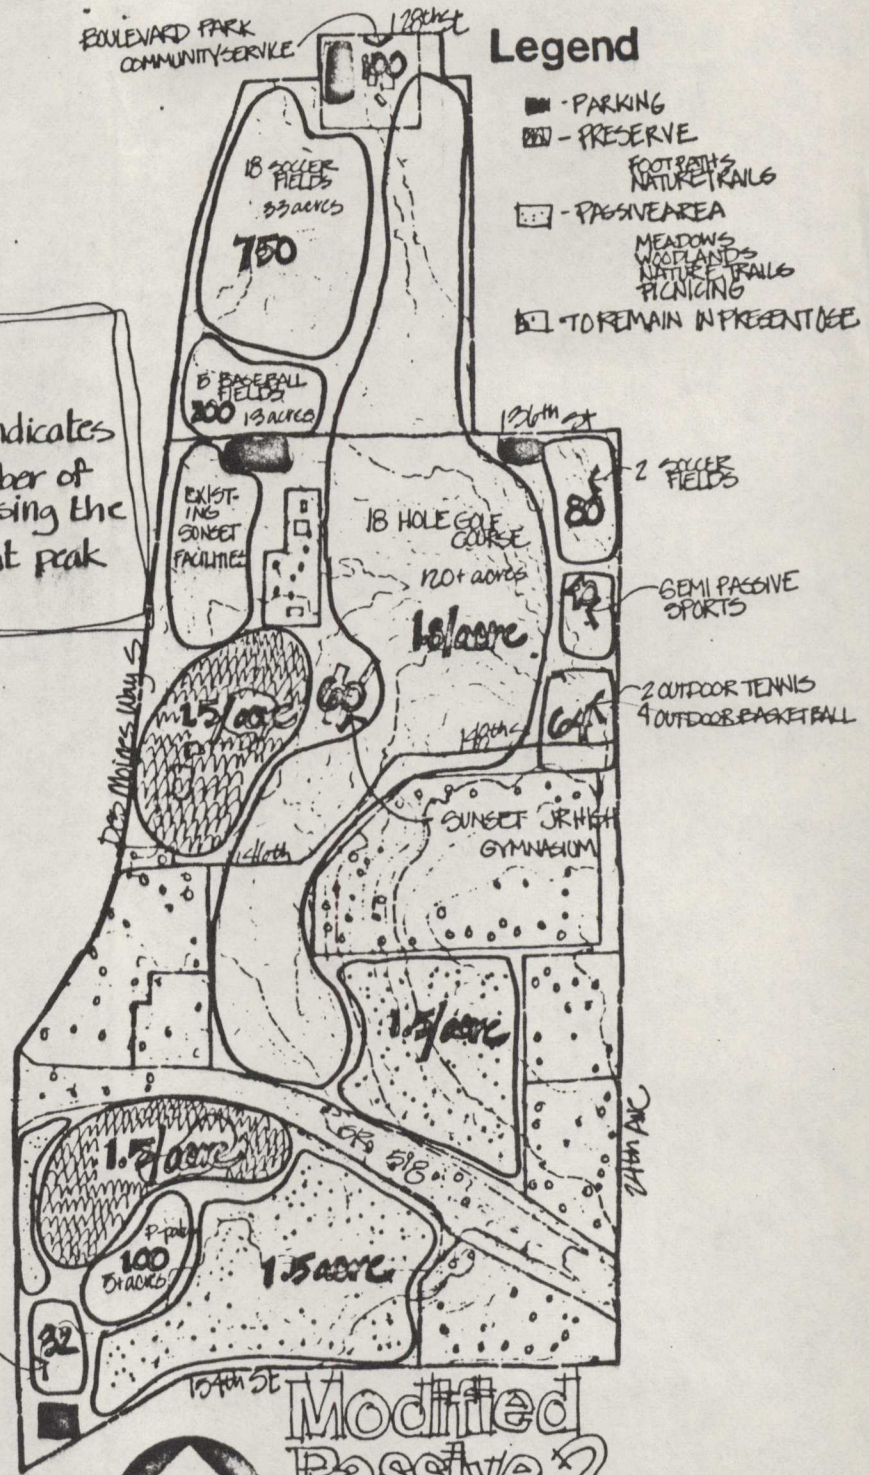 128th St
BOULEVARD PARK
COMMUNITY SERVICE
100
Legend
- PARKING
- PRESERVE
FOOTPATHS
NATURE TRAILS
- PASSIVE AREA
MEADOWS
WOODLANDS
NATURE TRAILS
PICNICING
- TO REMAIN IN PRESENT USE
18 SOCCER
FIELDS
33 acres
750
5 BASEBALL
FIELDS
200 13 acres
ndicates
ber of
sing the
t peak
136th St
2 SOCCER
FIELDS
80
EXIST-
ING
SUNSET
FACILITIES
18 HOLE GOLF
COURSE
120+ acres
1.8/acre
SEMI PASSIVE
SPORTS
2 OUTDOOR TENNIS
4 OUTDOOR BASKETBALL
64
1.5/acre
60
Des Moines Way S
142th S
SUNSET JR HIGH
GYMNASIUM
146th
1.5/acre
24th Ave
SR
518
1.5/acre
P-patch
100
5+acres
1.5 acre
32
154th St
Modified
Passive 2